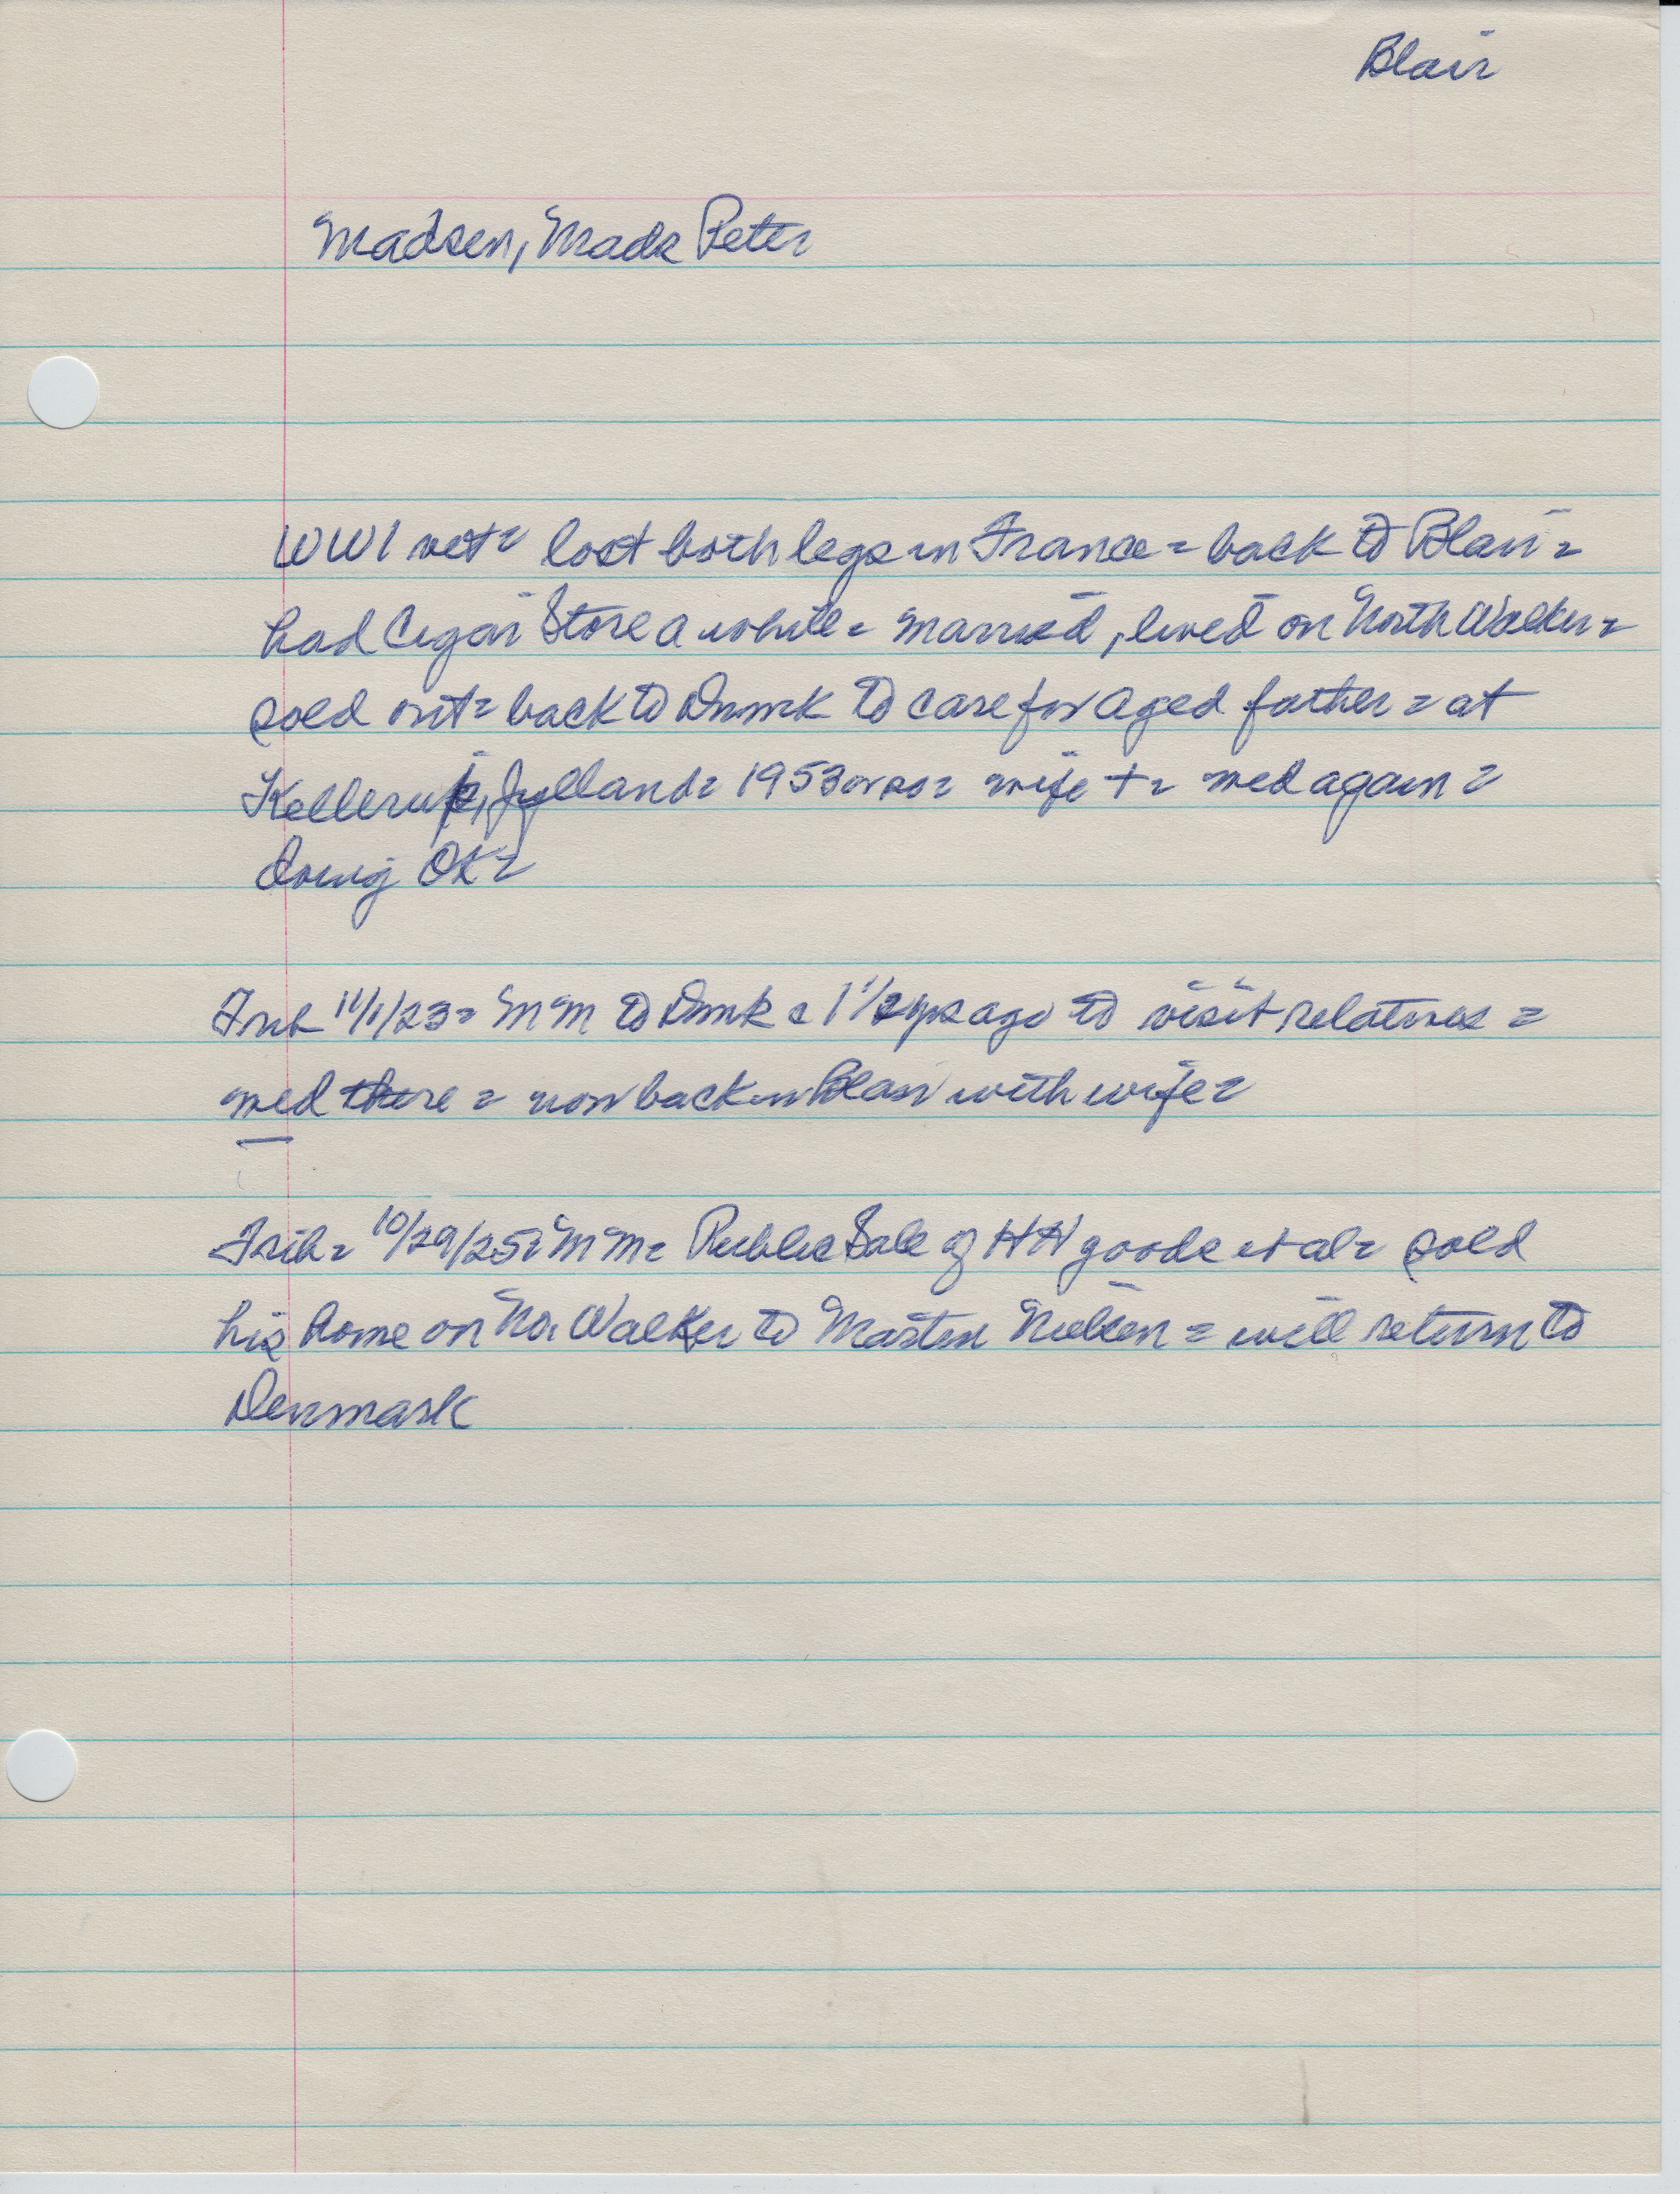 Blair
Madsen, Mads Peter
WW1 vet = lost both legs in France = back to Blair =
had Cigar Store a while = married, lived on North Walker =
sold out = back to Dnmrk to care for aged father = at
Kellerup, Jylland = 1953 or so = wife + = med again =
doing OK =
Trib 11/1/23 = MM to Dnmk = 1 1/2 yrs ago to visit relatives =
med there = now back in Blair with wife =
Trib = 10/29/25 = MM = Public Sale of HH goods et al = sold
his home on No. Walker to Martin Nielsen = will return to
Denmark